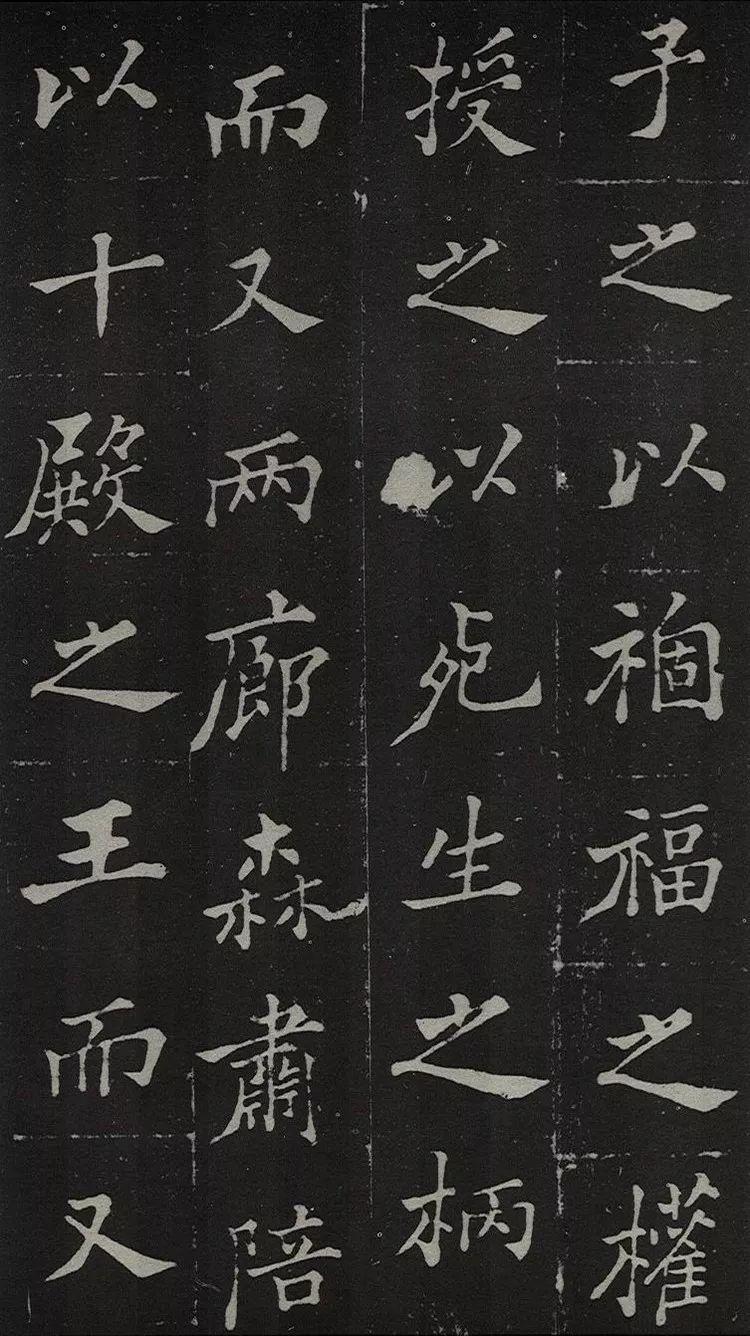 子之以祻福之權
授之以死生之柄
而又两廊森肅陪
以十殿之王而又